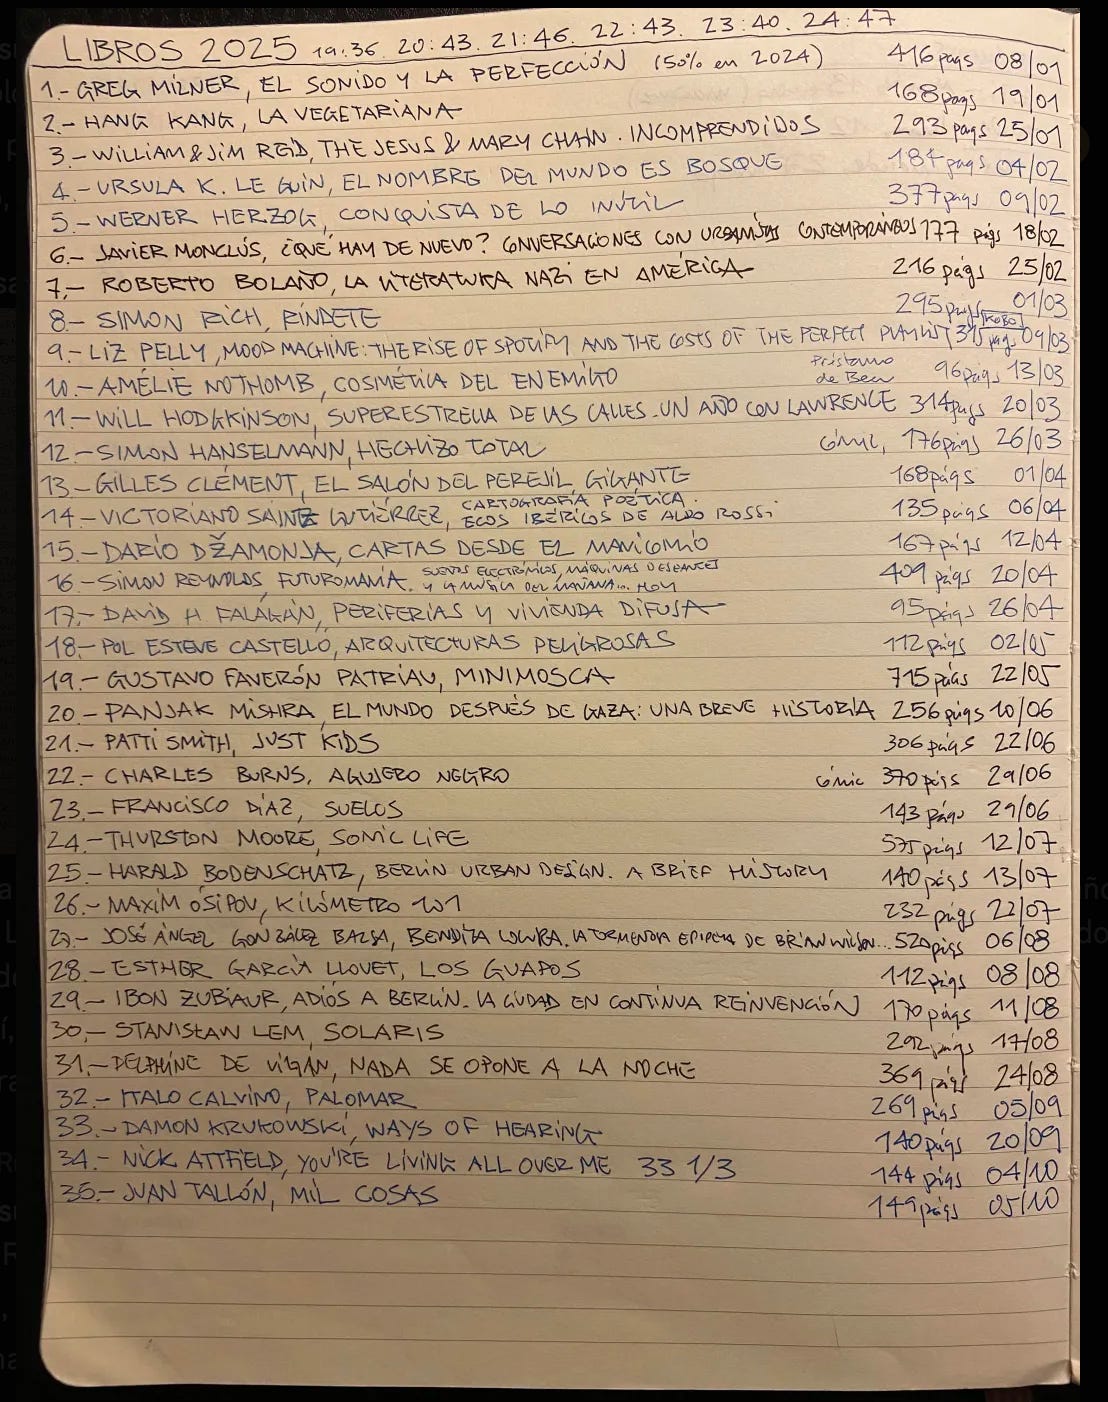 LIBROS 2025 19:36. 20:43. 21:46. 22:43. 23:40. 24:47
1.- GREG MILNER, EL SONIDO Y LA PERFECCIÓN (50% en 2024) 416 pags 08/01
2.- HANG KANG, LA VEGETARIANA 168 pags 19/01
3.- WILLIAM & JIM REID, THE JESUS & MARY CHAIN. INCOMPRENDIDOS 293 pags 25/01
4.- URSULA K. LE GUIN, EL NOMBRE DEL MUNDO ES BOSQUE 184 pags 04/02
5.- WERNER HERZOG, CONQUISTA DE LO INÚTIL 377 pags 09/02
6.- JAVIER MONCLÚS, ¿QUÉ HAY DE NUEVO? CONVERSACIONES CON URBANISTAS CONTEMPORÁNEOS 177 págs 18/02
7.- ROBERTO BOLAÑO, LA LITERATURA NAZI EN AMÉRICA 216 págs 25/02
8.- SIMON RICH, RÍNDETE 295 pags 01/03
9.- LIZ PELLY, MOOD MACHINE: THE RISE OF SPOTIFY AND THE COSTS OF THE PERFECT PLAYLIST KOBO págs 09/03
10.- AMÉLIE NOTHOMB, COSMÉTICA DEL ENEMIGO Préstamo de Bea 96 págs 13/03
11.- WILL HODGKINSON, SUPERESTRELLA DE LAS CALLES. UN AÑO CON LAWRENCE 314 pags 20/03
12.- SIMON HANSELMANN, HECHIZO TOTAL cómic, 176 págs 26/03
13.- GILLES CLÉMENT, EL SALÓN DEL PEREJIL GIGANTE 168 págs 01/04
14.- VICTORIANO SAINZ GUTIÉRREZ, CARTOGRAFÍA POÉTICA. ECOS IBÉRICOS DE ALDO ROSSI 135 págs 06/04
15.- DARIO DŽAMONJA, CARTAS DESDE EL MANICOMIO 167 págs 12/04
16.- SIMON REYNOLDS, FUTUROMANÍA. SUEÑOS ELECTRÓNICOS, MÁQUINAS DESEANTES Y LA MÚSICA DEL MAÑANA... HOY 409 págs 20/04
17.- DAVID H FALAGÁN, PERIFERIAS Y VIVIENDA DIFUSA 95 págs 26/04
18.- POL ESTEVE CASTELLÓ, ARQUITECTURAS PELIGROSAS 112 págs 02/05
19.- GUSTAVO FAVERÓN PATRIAU, MINIMOSCA 715 págs 22/05
20.- PANJAK MISHRA, EL MUNDO DESPUÉS DE GAZA: UNA BREVE HISTORIA 256 págs 10/06
21.- PATTI SMITH, JUST KIDS 306 págs 22/06
22.- CHARLES BURNS, AGUJERO NEGRO cómic 370 págs 29/06
23.- FRANCISCO DÍAZ, SUELOS 143 págs 29/06
24.- THURSTON MOORE, SONIC LIFE 575 págs 12/07
25.- HARALD BODENSCHATZ, BERLIN URBAN DESIGN. A BRIEF HISTORY 140 págs 13/07
26.- MAXIM ÓSIPOV, KILÓMETRO 101 232 págs 22/07
27.- JOSÉ ÁNGEL GONZÁLEZ BALSA, BENDITA LOCURA. LA TORMENTA EPOPEYA DE BRIAN WILSON... 520 págs 06/08
28.- ESTHER GARCÍA LLOVET, LOS GUAPOS 112 págs 08/08
29.- IBON ZUBIAUR, ADIÓS A BERLÍN. LA CIUDAD EN CONTINUA REINVENCIÓN 170 págs 11/08
30.- STANISŁAW LEM, SOLARIS 292 págs 17/08
31.- DELPHINE DE VIGAN, NADA SE OPONE A LA NOCHE 369 págs 24/08
32.- ITALO CALVINO, PALOMAR 269 págs 05/09
33.- DAMON KRUKOWSKI, WAYS OF HEARING 140 págs 20/09
34.- NICK ATTFIELD, YOU'RE LIVING ALL OVER ME 33 1/3 144 págs 04/10
35.- JUAN TALLÓN, MIL COSAS 149 págs 05/10